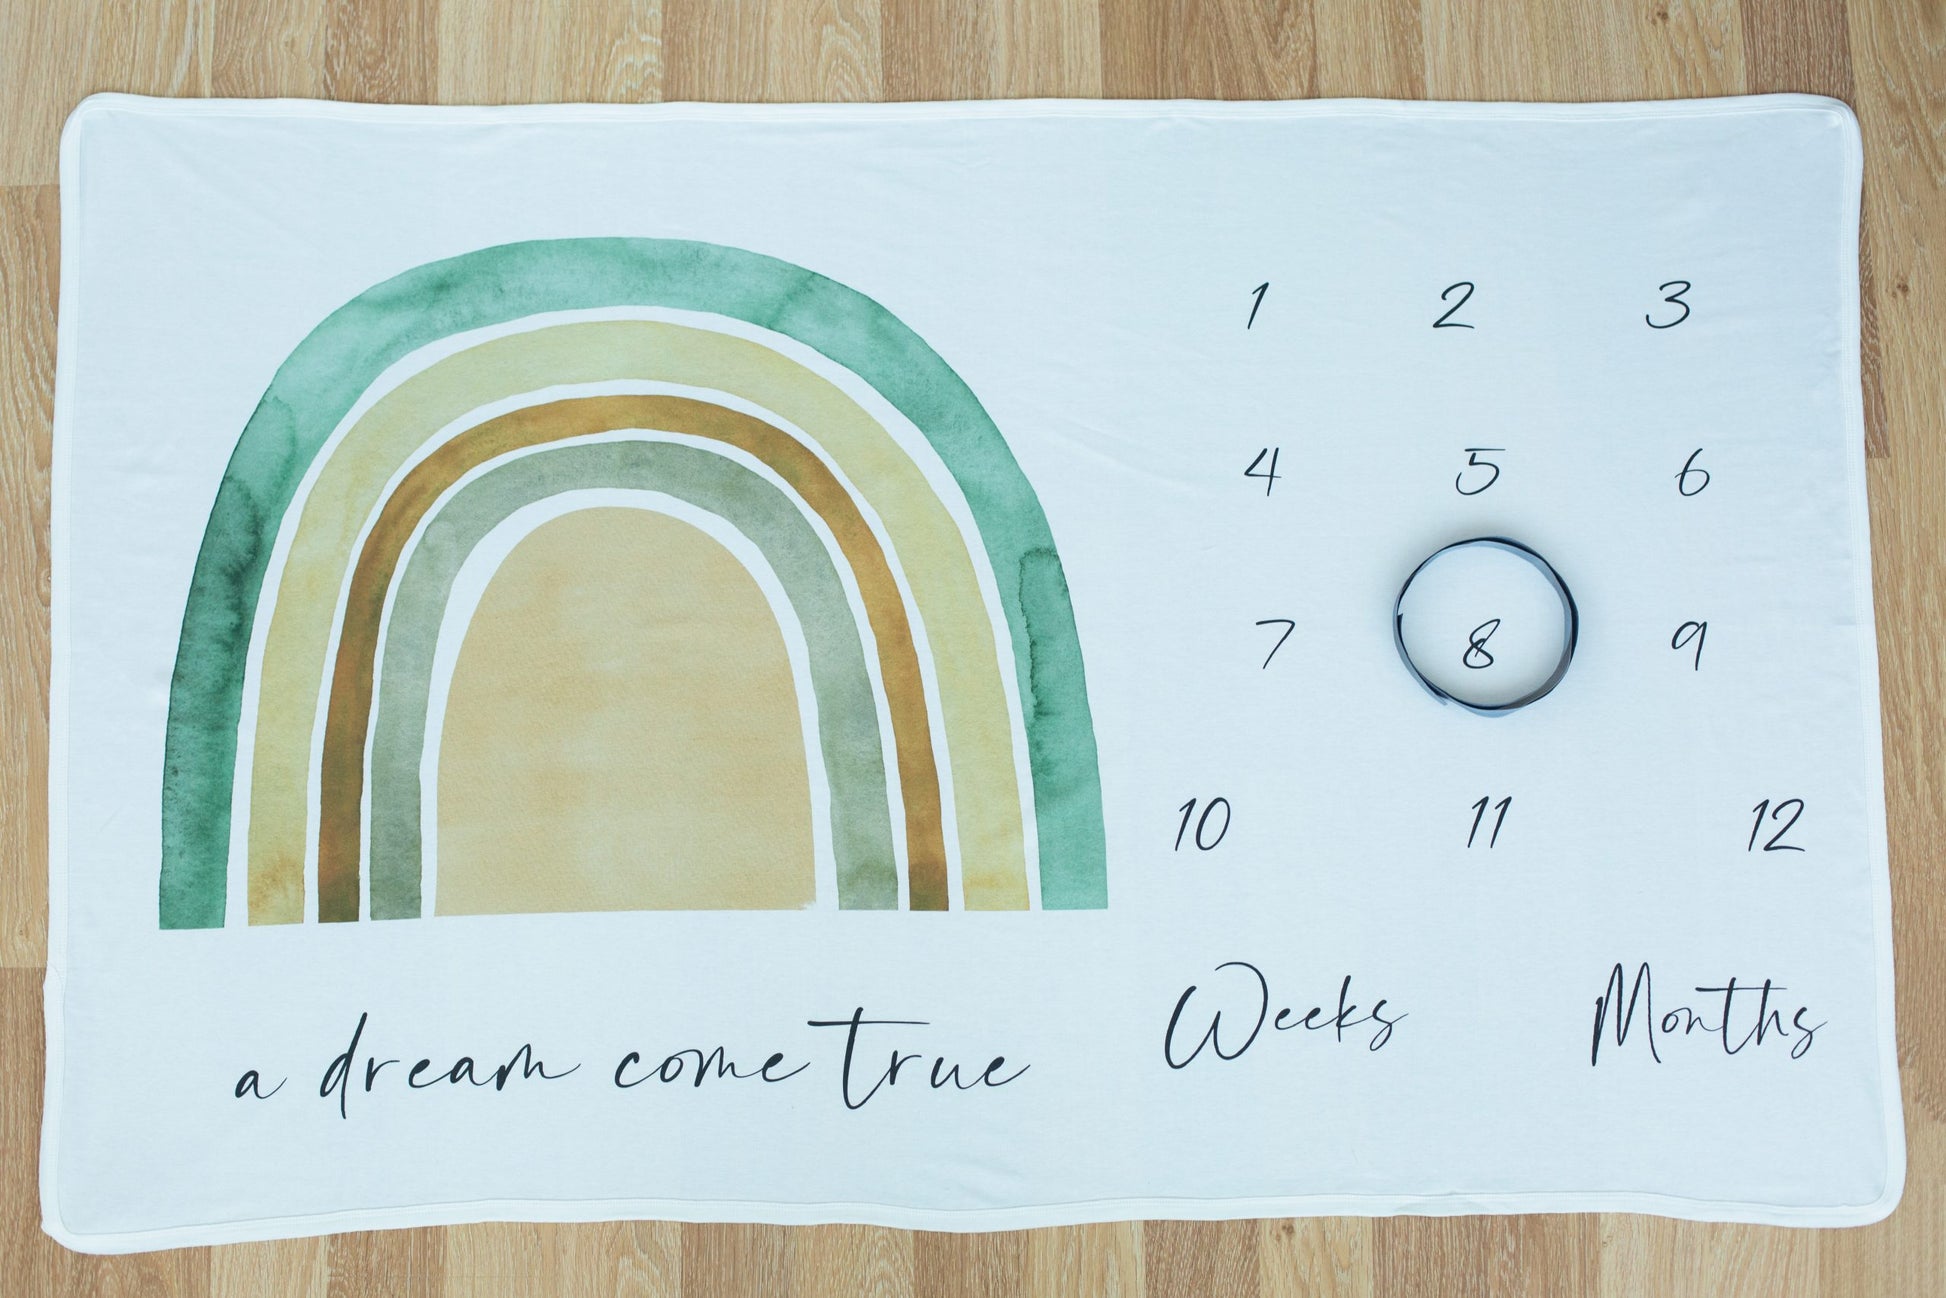 1 2 3
4 5 6
7 8 9
10 11 12
Weeks Months
a dream come true